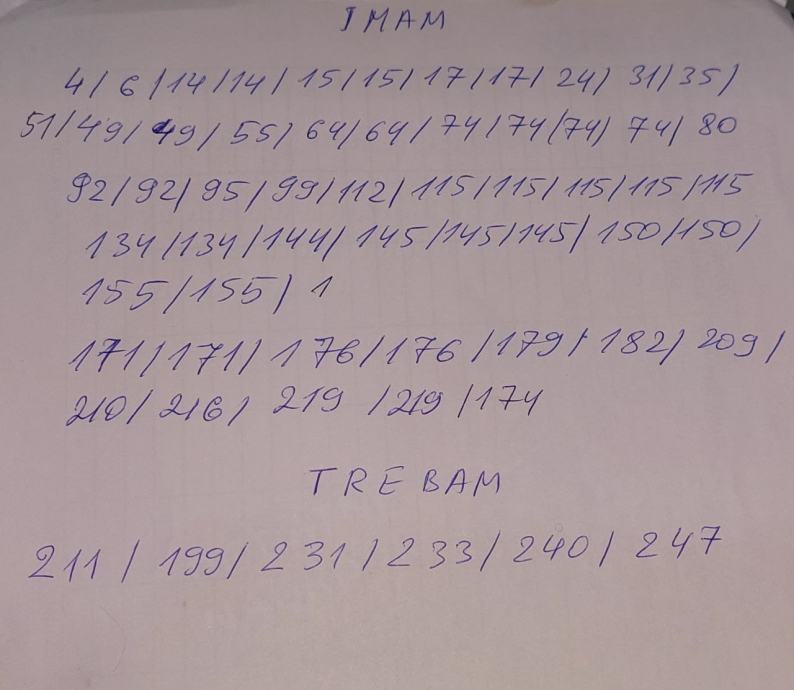 IMAM
4/ 6/14/14/ 15/15/17/17/ 24/ 31/35/
51/49/ 49/ 55/ 64/64/ 74/74/74/ 74/ 80
92/92/95/99/112/ 115/115/115/115/115
134/134/144/ 145/145/145/ 150/150/
155/155/ 1
171/171/ 176/176 /179/ 182/ 209/
210/ 216/ 219 /219 /174
TREBAM
211/ 199/ 231/233/240/ 247